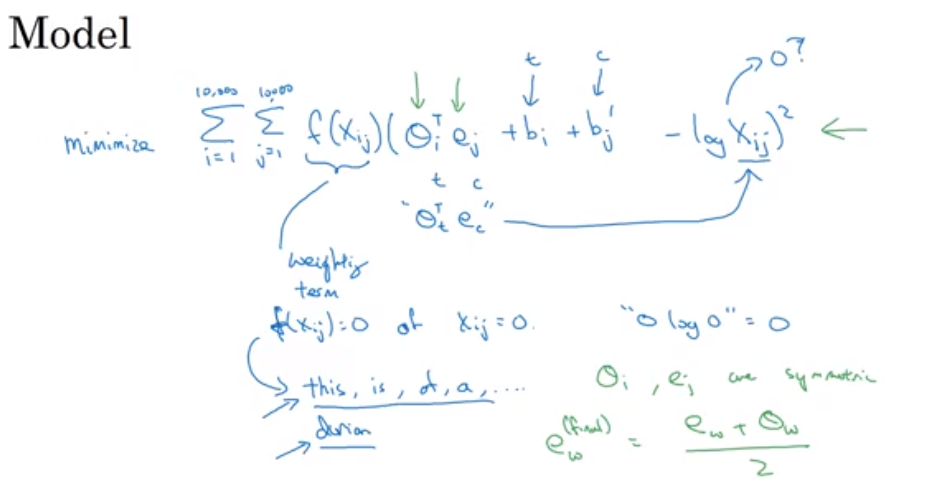 Model
minimize 10,000 ∑ i=1 10,000 ∑ j=1 f(Xij)(Θi^T ej + bi + bj' - log Xij)^2 ←
t c 0?
t c
"Θt^T ec"
weighting
term
f(xij)=0 if Xij=0. "0 log 0" = 0
this, is, of, a, .... Θi, ej are symmetric
durian
ew^(final) = ew + Θw / 2